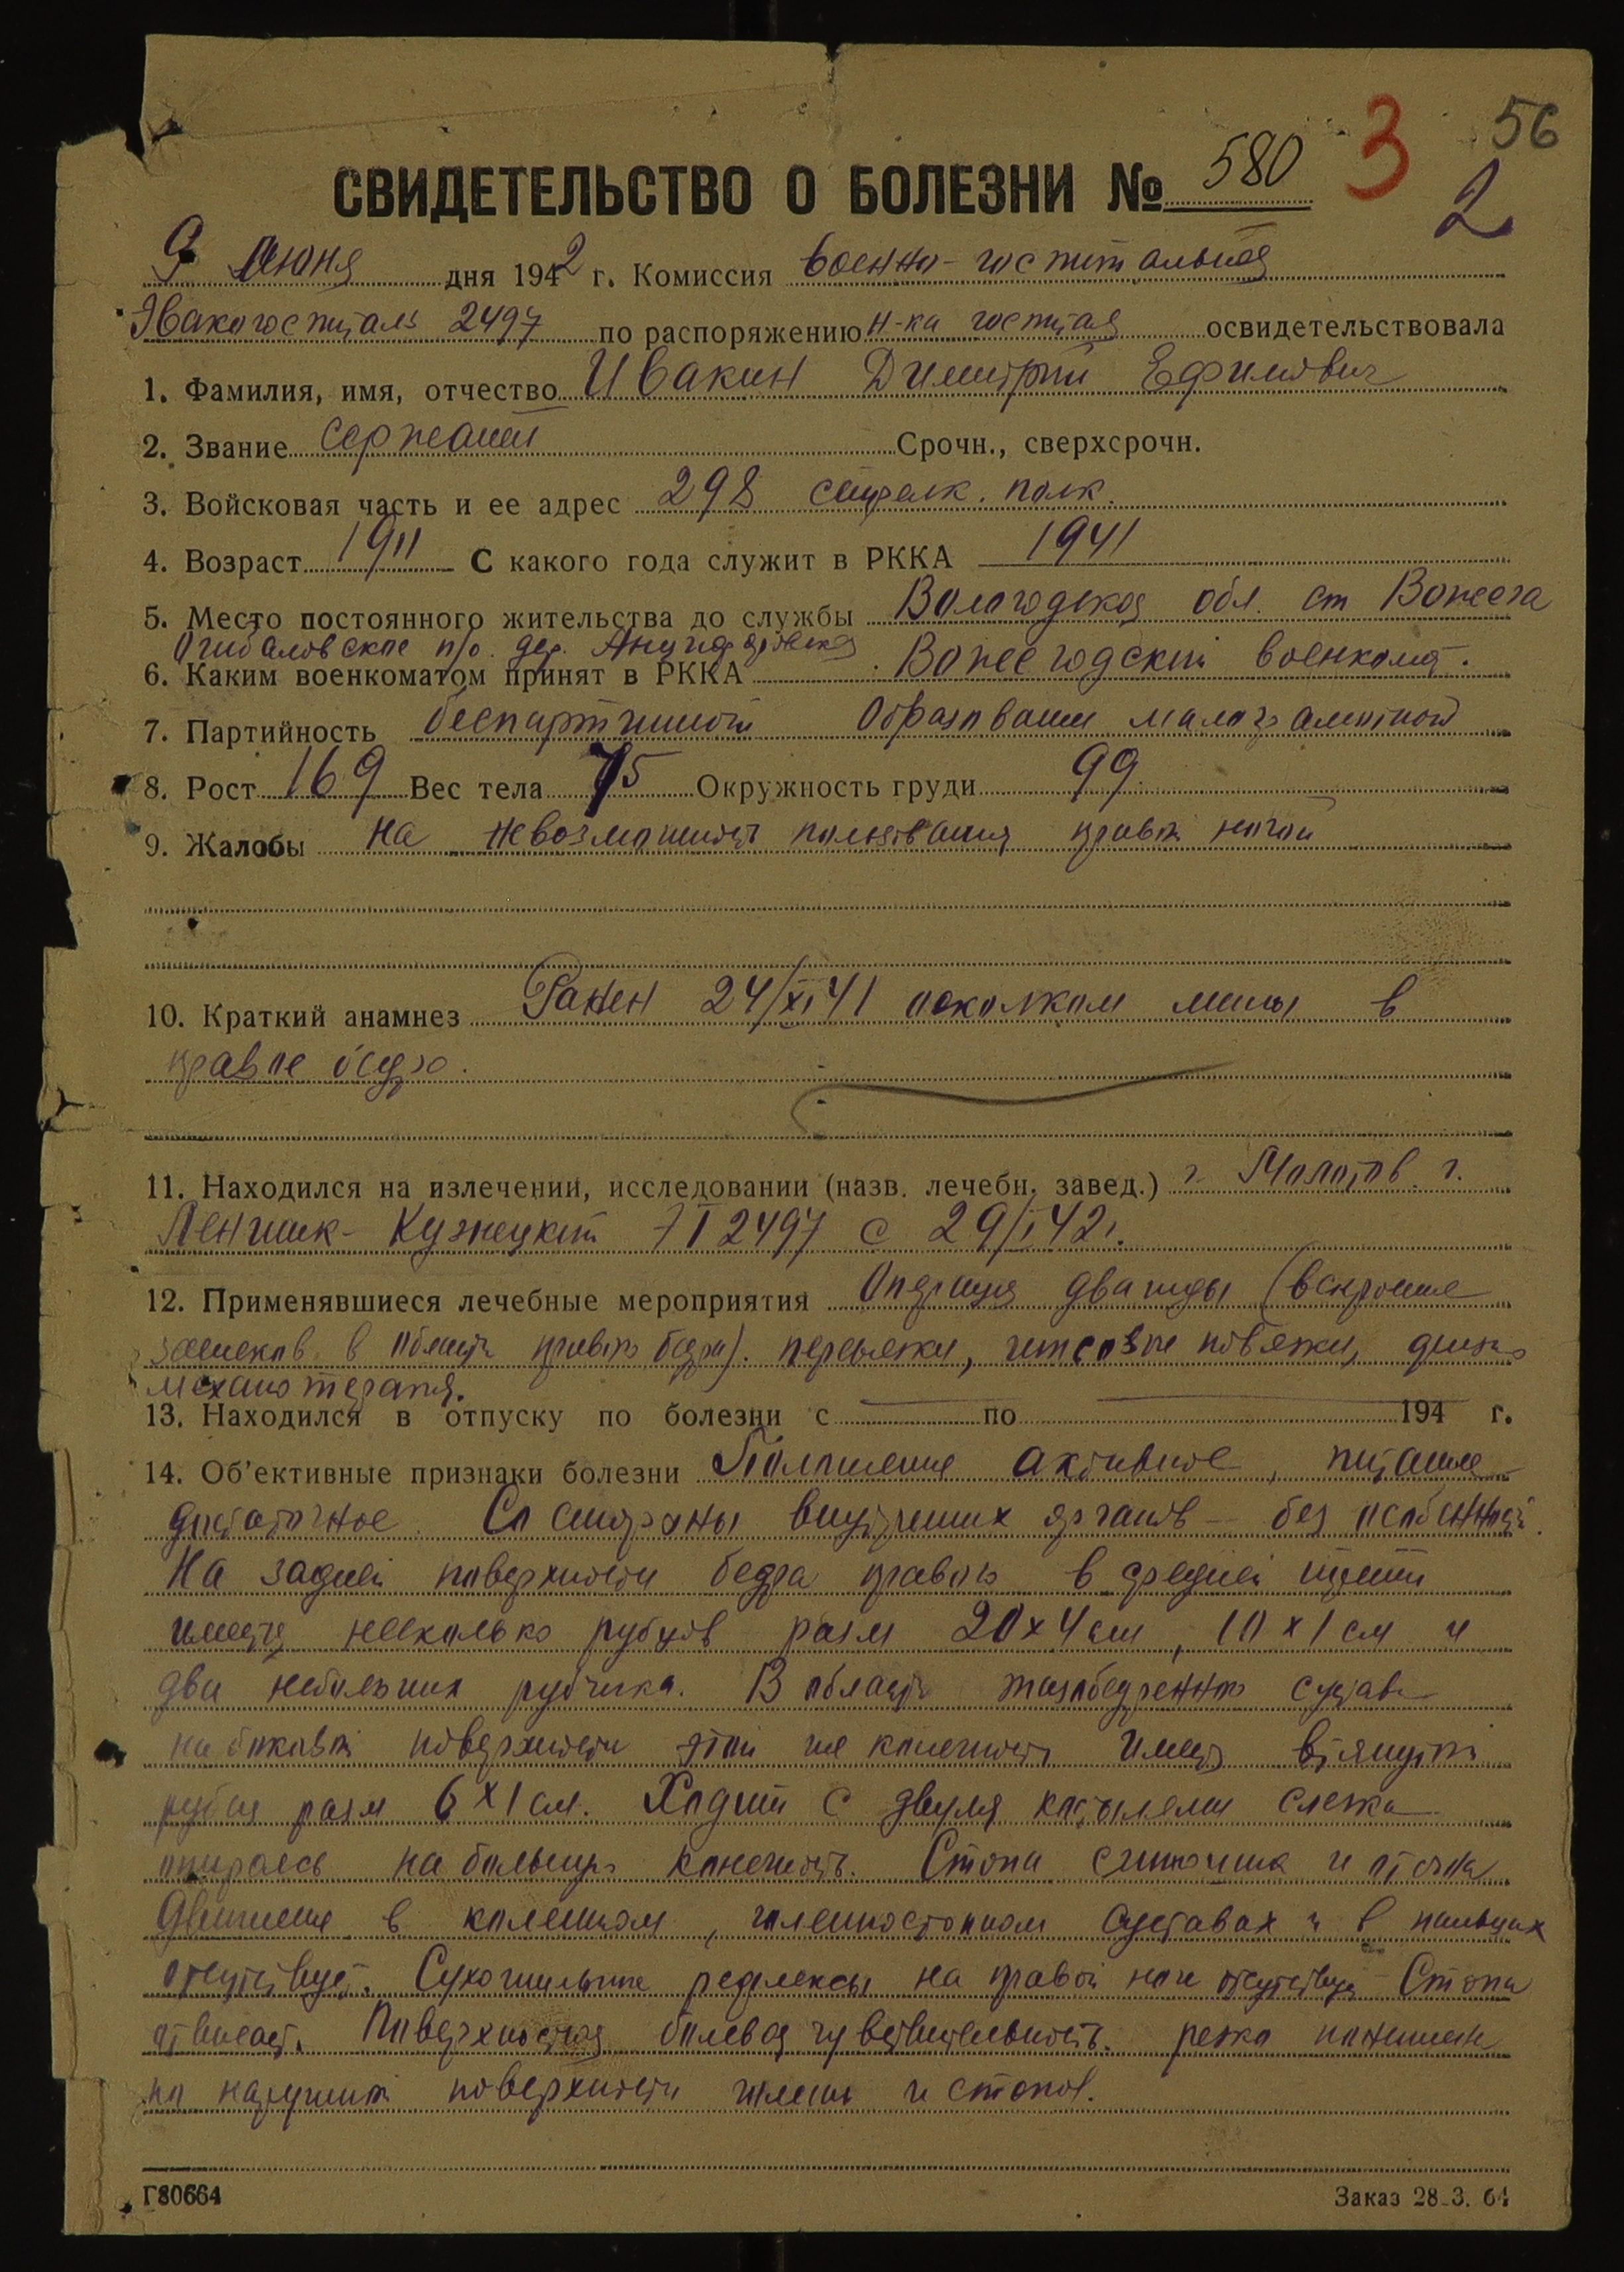 56
3
2
СВИДЕТЕЛЬСТВО О БОЛЕЗНИ № 580
9 Июня дня 1942 г. Комиссия военно-госпитальная
Эвакогоспиталь 2497 по распоряжению н-ка госпиталя освидетельствовала
1. Фамилия, имя, отчество Ивакин Димитрий Ефимович
2. Звание Сержант Срочн., сверхсрочн.
3. Войсковая часть и ее адрес 298 стрелк. полк.
4. Возраст 1911 С какого года служит в РККА 1941
5. Место постоянного жительства до службы Вологодская обл. ст Вожега
Огибаловское п/о. дер.
6. Каким военкоматом принят в РККА Вожегодский военкомат.
7. Партийность беспартийный Образование малограмотный
8. Рост 169 Вес тела 75 Окружность груди 99
9. Жалобы на невозможность пользования правой ногой
10. Краткий анамнез Ранен 24/XI 41 осколком мины в
правое бедро.
11. Находился на излечении, исследовании (назв. лечебн. завед.) г. Молотов. г.
Ленинск-Кузнецкий ЭГ 2497 с 29/I 42г.
12. Применявшиеся лечебные мероприятия Операция дважды (вскрытие
затеков в области правого бедра). перевязки, гипсовые повязки,
механотерапия.
13. Находился в отпуску по болезни с по 194 г.
14. Об'ективные признаки болезни Положение активное, питание
достаточное. Со стороны внутренних органов — без особенностей.
На задней поверхности бедра правого в средней трети
имеется несколько рубцов разм 20х4 см, 10х1 см и
два небольших рубчика. В области тазобедренного сустава
на боковой поверхности этой же конечности имеется втянутый
рубец разм 6х1 см. Ходит с двумя костылями слегка
опираясь на больную конечность. Стопа синюшна и отечна
Движения в коленном, голеностопном суставах и в пальцах
отсутствуют. Сухожильные рефлексы на правой ноге отсутствуют Стопа
отвисает. Поверхностная болевая чувствительность резко понижена
по наружной поверхности голени и стопы.
Г80664
Заказ 28-3. 64